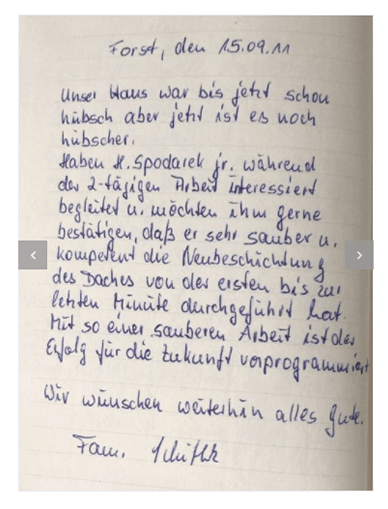 Forst, den 15.09.11
Unser Haus war bis jetzt schon
hübsch aber jetzt ist es noch
hübscher.
Haben H. Spodarek jr. während
der 2-tägigen Arbeit interessiert
begleitet u. möchten ihm gerne
bestätigen, daß er sehr sauber u.
kompetent die Neubeschichtung
des Daches von der ersten bis zur
letzten Minute durchgeführt hat.
Mit so einer sauberen Arbeit ist der
Erfolg für die Zukunft vorprogrammiert
Wir wünschen weiterhin alles Gute.
Fam.